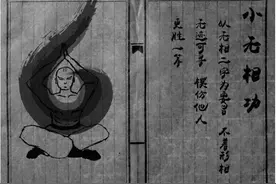 小无相功
以无相二字为要旨 不着形相
无迹可寻 模仿他人
更胜一筹